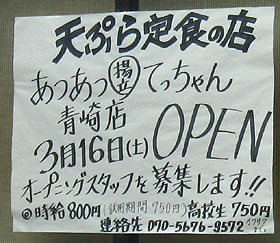 天ぷら定食の店
あつあつ揚立てっちゃん
青崎店
3月16日(土) OPEN
オープニングスタッフを募集します!!
@時給800円(試用期間750円)高校生750円
連絡先 070-5676-9572